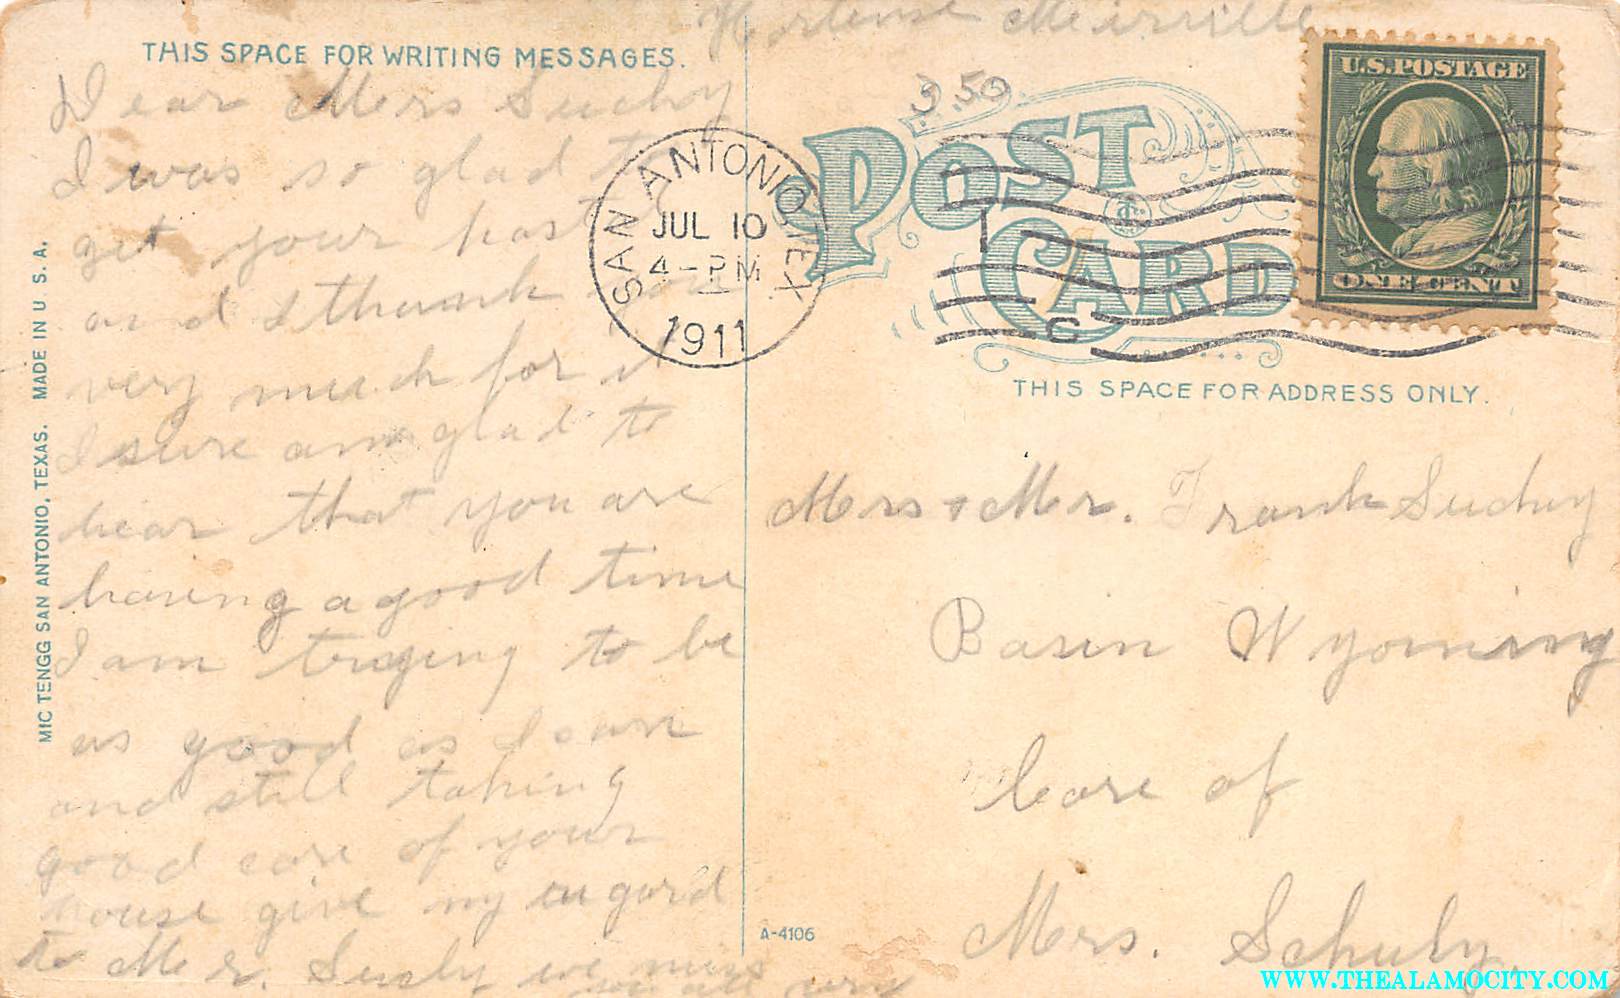 Hortense Meirville
THIS SPACE FOR WRITING MESSAGES.
Dear Mers Suchy
I was so glad to
get your postal
and I thank you
very much for it
I sure am glad to
hear that you are
having a good time
I am trying to be
as good as I can
and still taking
good care of your
house give my regard
to Mr. Suchy we miss
you all very
MfC TENGG SAN ANTONIO, TEXAS. MADE IN U. S. A.
3.50
SAN ANTONIO, TEX.
JUL 10
4-PM
1911
POST CARD
1
C
U.S.POSTAGE
ONE CENT
THIS SPACE FOR ADDRESS ONLY.
Mers & Mr. Frank Suchy
Basin Wyoming
Care of
Mers. Schuly.
A-4106
WWW.THEALAMOCITY.COM